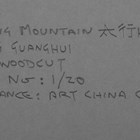 NG MOUNTAIN 太行
GUANGHUI
WOODCUT
NO: 1/20
ANCE: ART CHINA